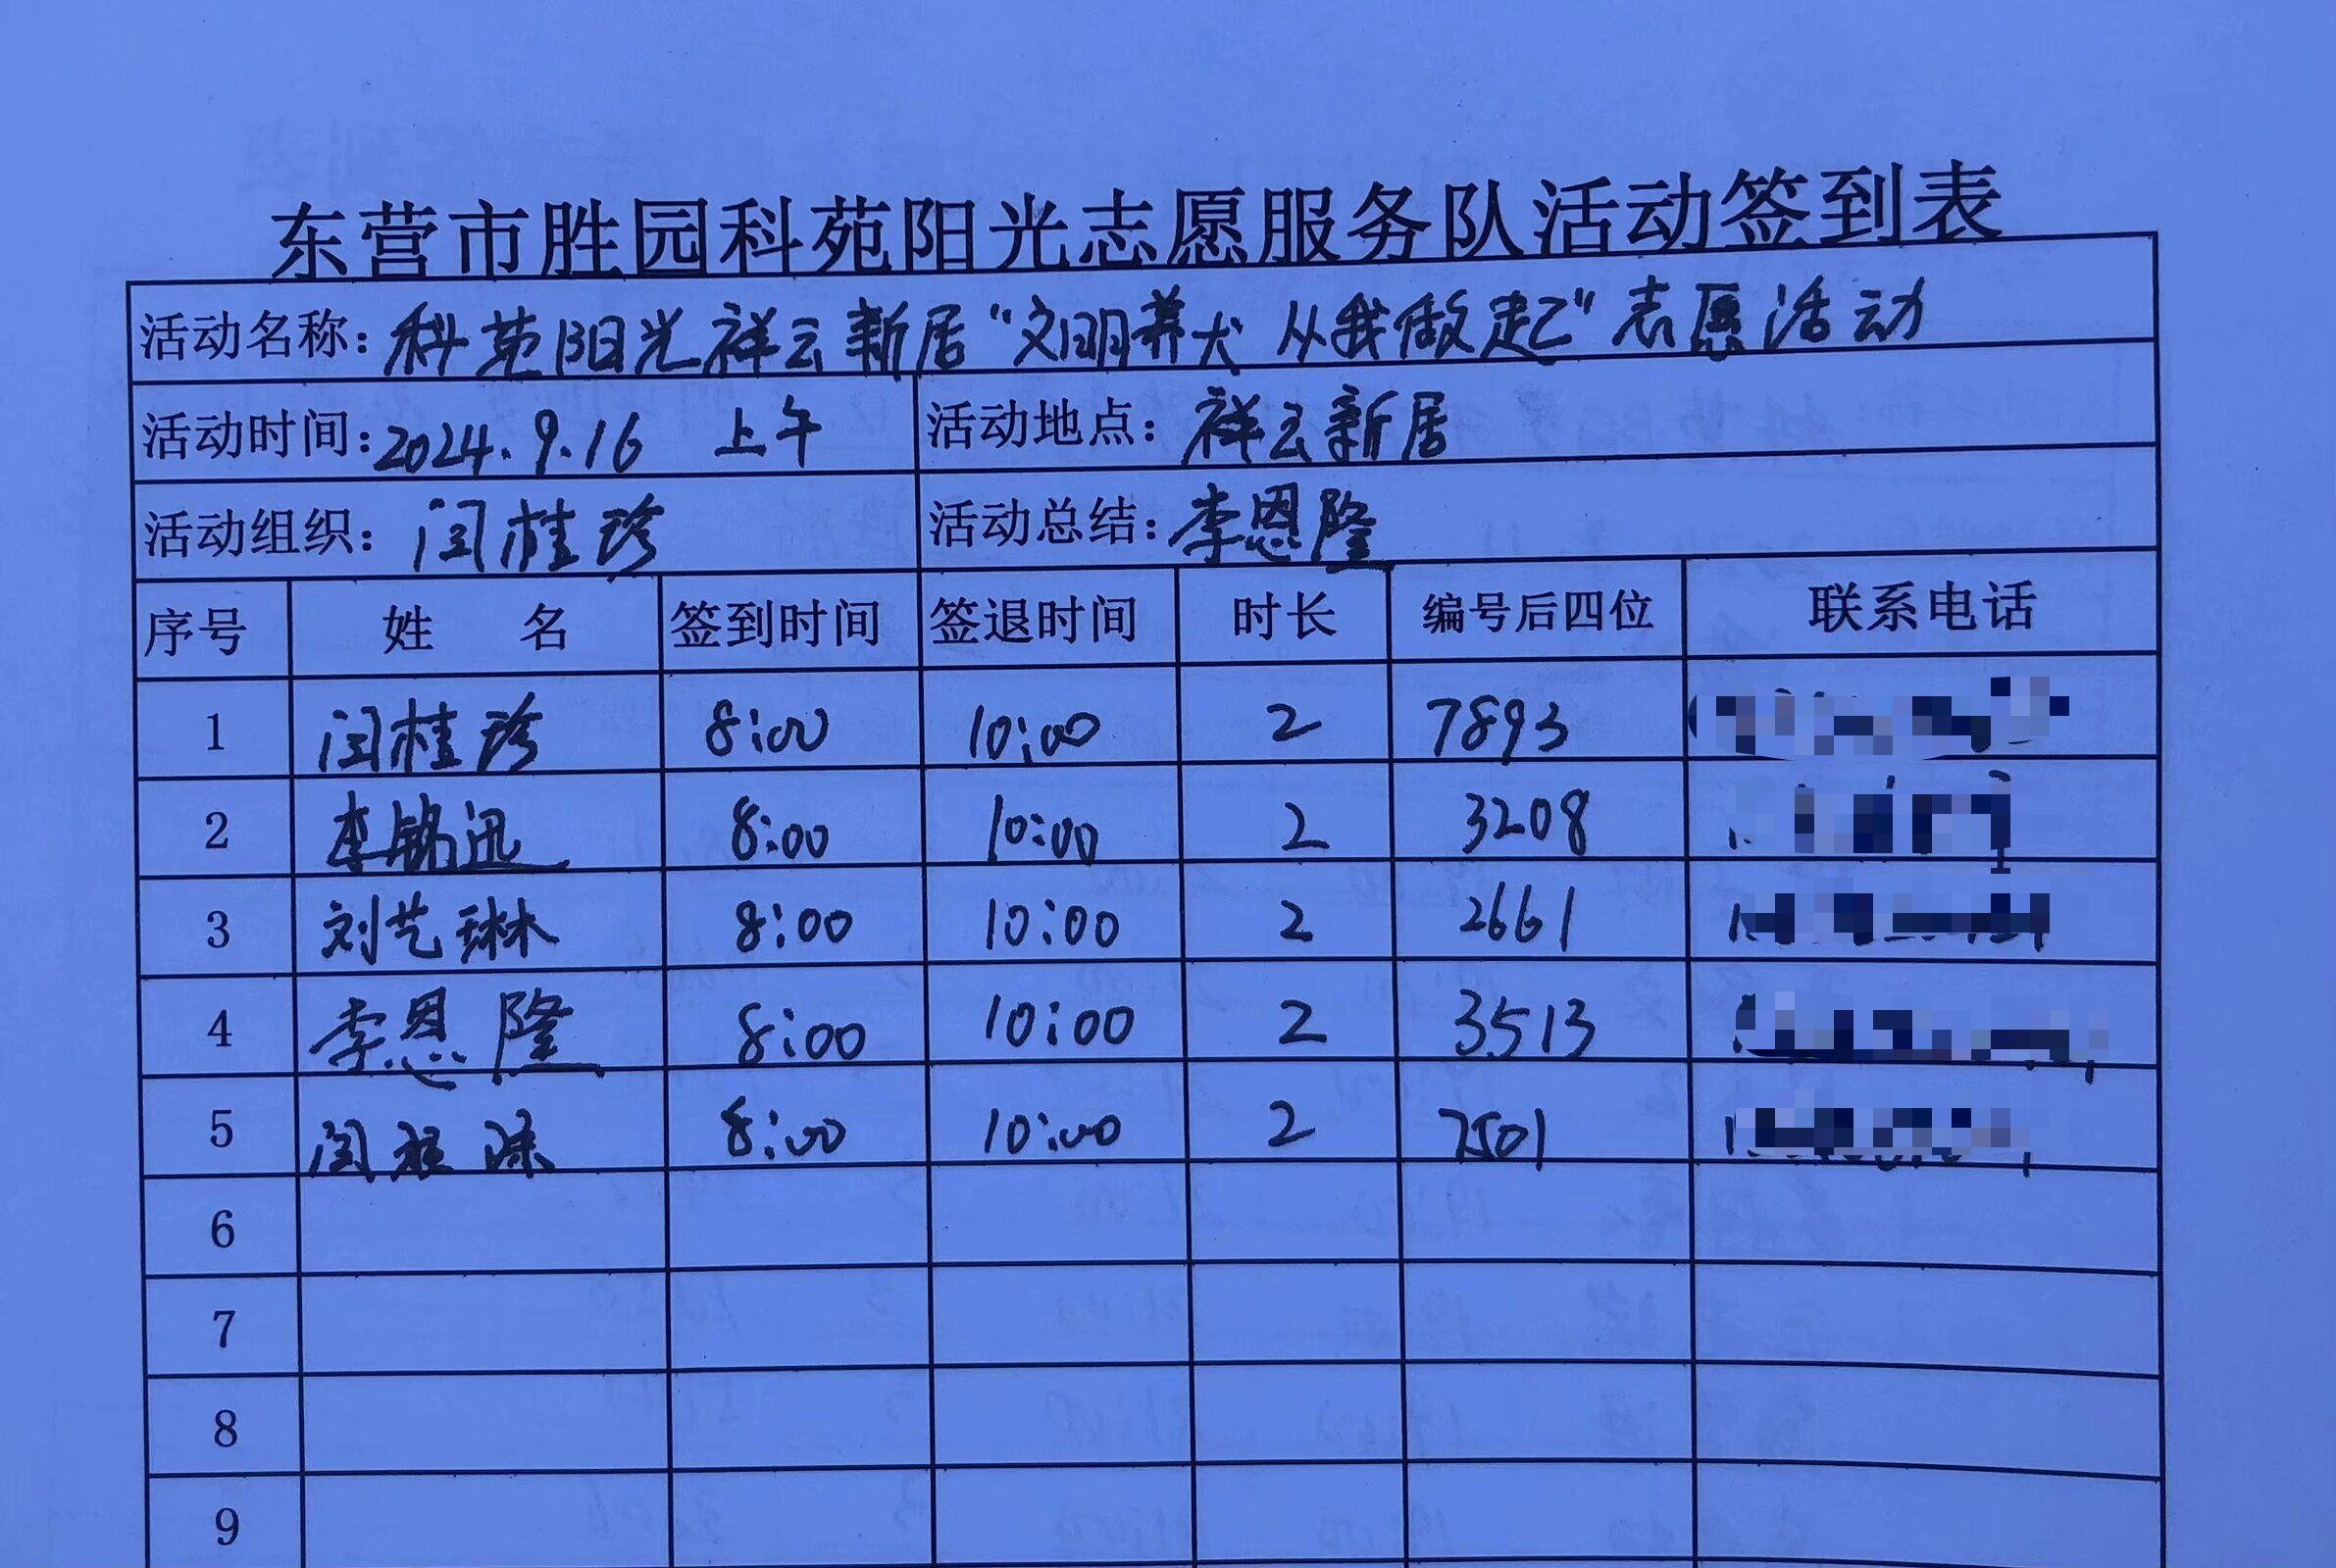 东营市胜园科苑阳光志愿服务队活动签到表
活动名称：科苑阳光祥云新居“文明养犬 从我做起”志愿活动
活动时间：2024.9.16 上午 活动地点：祥云新居
活动组织：闫桂珍 活动总结：李恩隆
序号 姓 名 签到时间 签退时间 时长 编号后四位 联系电话
1 闫桂珍 8:00 10:00 2 7893
2 李锦迅 8:00 10:00 2 3208
3 刘艺琳 8:00 10:00 2 2661
4 李恩隆 8:00 10:00 2 3513
5 闫 8:00 10:00 2 7501
6
7
8
9